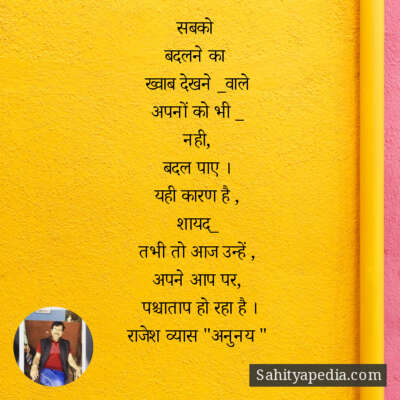 सबको
बदलने का
ख्वाब देखने _वाले
अपनों को भी _
नही,
बदल पाए ।
यही कारण है ,
शायद_
तभी तो आज उन्हें ,
अपने आप पर,
पश्चाताप हो रहा है ।
राजेश व्यास "अनुनय "
Sahityapedia.com